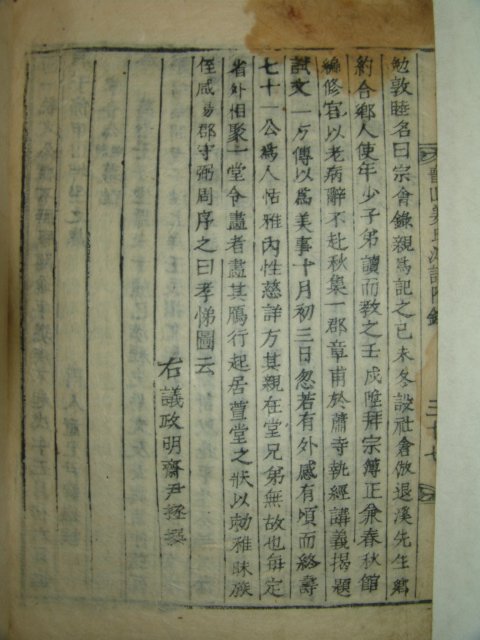 勉敦睦名曰宗會錄親爲記之已未冬設社倉倣退溪先生鄕
約合鄕人使年少子弟讀而教之壬戌陞拜宗簿正兼春秋館
編修官以老病辭不赴秋集一郡章甫於蕭寺執經講義揭題
試文一方傳以爲美事十月初三日忽若有外感有頃而終壽
七十一公爲人恬雅內性慈詳方其親在堂兄弟無故也每定
省外相聚一堂令畫者畫其鴈行起居萱堂之狀以勅雅昧族
侄咸昜郡守弼周序之曰孝悌圖云
右議政明齋尹拯撰